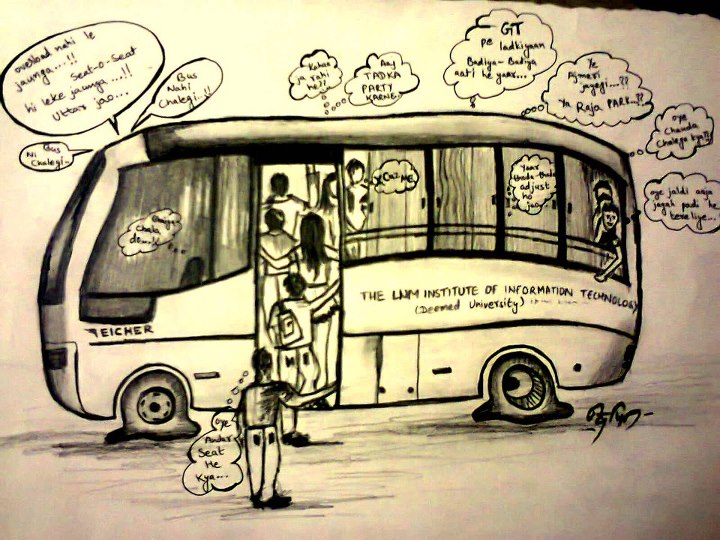 overload nahi le
jaunga...!!
seat-o-seat
hi leke jaunga...!!
Uttar jao...
Bus
Nahi
Chalegi..!!
Bus
Ni
Chalegi..
Kahan
ja rahi
he??
Aaj
TADKA
PARTY
KARNE..
GIT
pe ladkiyaan
Badiya-Badiya
aati he yaar...
Ye
Ajmeri
jayegi...??
Ya Raja PARK..??
oye
Chauda
Chalega kya??
oye jaldi aaja
jagah padi he
tere liye...
xCuz ME
Yaar
thoda thoda
adjust
ho
jao
chala
THE LNM INSTITUTE OF INFORMATION TECHNOLOGY
(Deemed University)
EICHER
oye
Andar
Seat
He
Kya...